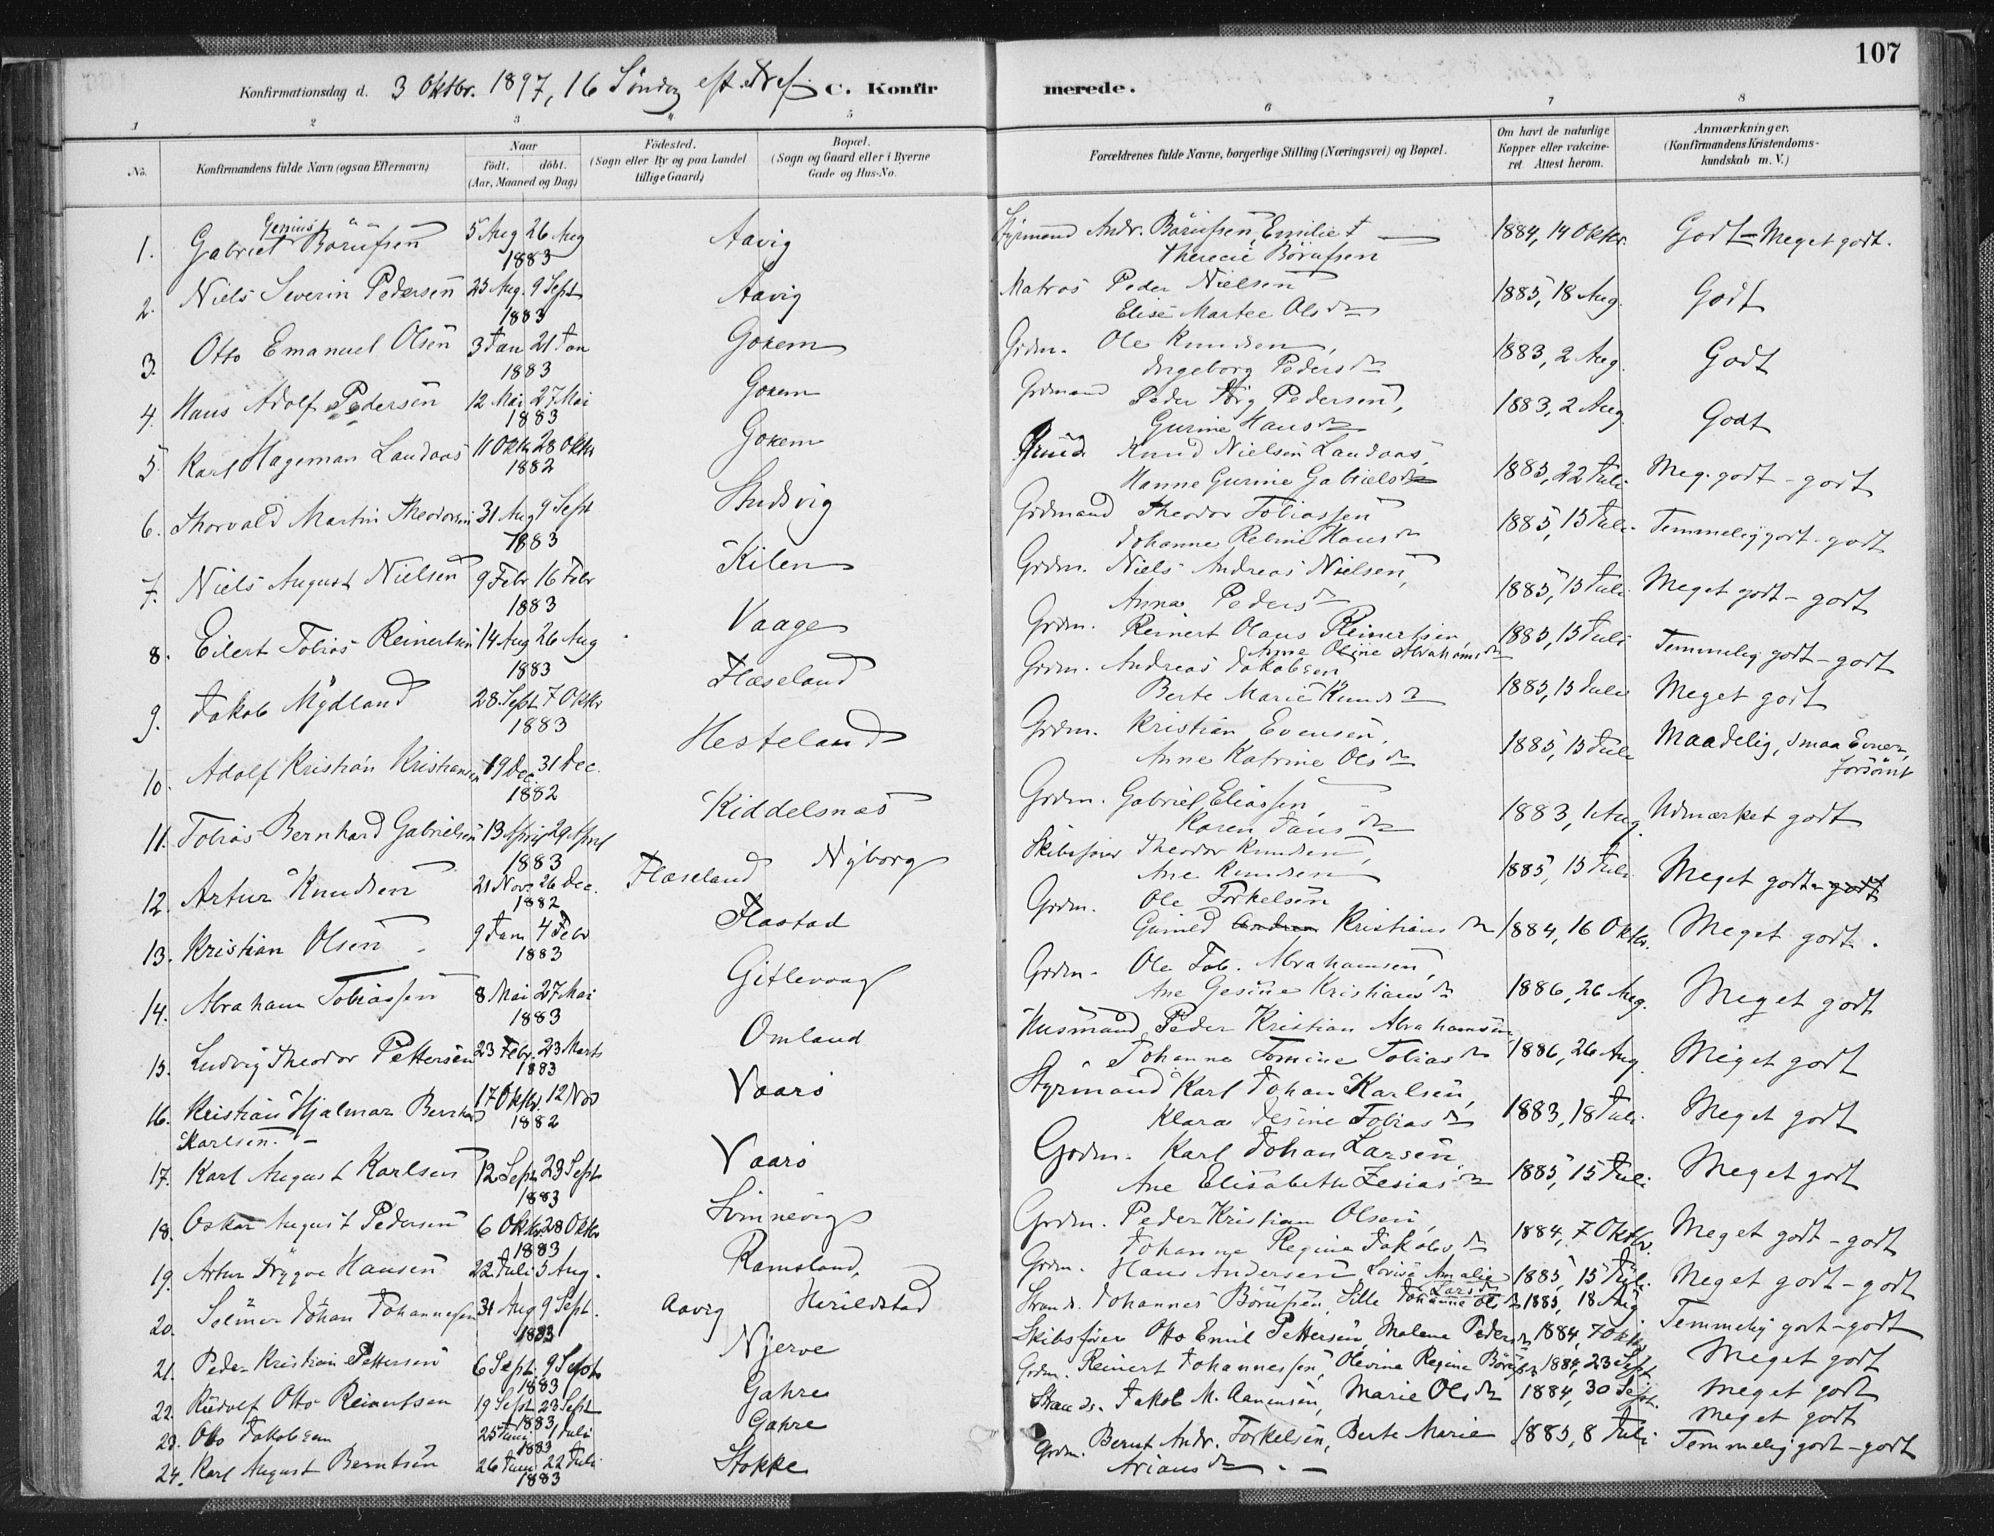 107
Konfirmationsdag d. 3 Oktbr. 1897, 16 Söndag eft. Tref. C. Konfir merede.
1 2 3 5 6 7 8
No.
Konfirmandens fulde Navn (ogsaa Efternavn)
Naar
födt. döbt.
(Aar, Maaned og Dag)
Födested.
(Sogn eller By og paa Landet
tillige Gaard)
Bopæl.
(Sogn og Gaard eller i Byerne
Gade og Hus-No.
Forældrenes fulde Navne, borgerlige Stilling (Næringsvei) og Bopæl.
Om havt de naturlige
Kopper eller vakcine-
ret. Attest herom.
Anmærkninger.
(Konfirmandens Kristendoms-
kundskab m. V.)
1. Gabriel Genius Börufsen 5 Aug 26 Aug 1883 Aavig Styrmand Andr. Börufsen, Emilie Therecie Börufsen 1884, 14 Oktbr. Godt - Meget godt.
2. Niels Severin Pedersen 25 Aug. 9 Sept 1883 Aavig Matros Peder Nielsen Elise Martee Olsdr 1885, 18 Aug. Godt
3. Otto Emanuel Olsen 3 Jan 21 Jan 1883 Gosem Grdm. Ole Knudsen, Ingeborg Pedersdr 1883, 2 Aug. Godt
4. Hans Adolf Pedersen 12 Mai 27 Mai 1883 Gosem Grdmand Peder Pedersen, Gurine Hansdr 1883, 2 Aug. Godt
5. Karl Hageman Landaas 11 Oktbr 28 Oktbr 1882 Gosem Knud Nielsen Landaas, Hanne Gurine Gabrielsdr 1885, 22 Juli Meg. godt - godt
6. Thorvald Martin Theodorsen 31 Aug 9 Sept 1883 Studsvig Grdmand Theodor Tobiassen Johanne Hansdr 1885, 15 Juli Temmelig godt - godt
7. Niels August Nielsen 9 Febr 16 Febr 1883 Kilen Grdm. Niels Andreas Nielsen, Anna Pedersdr 1885, 15 Juli Meget godt - godt
8. Eilert Tobias Reinertsen 14 Aug 26 Aug 1883 Vaage Grdm. Reinert Olaus Reinertsen, Anne Oline Abrahamsdr 1885, 15 Juli Temmelig godt - godt
9. Jakob Mydland 28 Sept 7 Oktbr 1883 Flæseland Grdm. Andreas Jakobsen Berte Marie Knudsdr 1885, 15 Juli Meget godt
10. Adolf Kristian Kristiansen 19 Dec. 31 Dec. 1882 Hesteland Grdm. Kristian Evensen, Anne Katrine Olsdr 1885, 15 Juli Maadelig, smaa Evner, forsömt
11. Tobias Bernhard Gabrielsen 13 April 29 April 1883 Kiddelsnæs Grdm. Gabriel Eliassen, Karen Jansdr 1883, 1 Aug. Udmærket godt
12. Artur Knudsen 21 Nov. 26 Dec. 1882 Flæseland Nyborg Skibsförer Theodor Knudsen, Ane Knudsen 1885, 15 Juli Meget godt - godt
13. Kristian Olsen 9 Jan 4 Febr 1883 Flastad Grdm. Ole Torkelsen Gunild Kristiansdr 1884, 16 Oktbr. Meget godt.
14. Abraham Tobiassen 8 Mai 27 Mai 1883 Gitlevaag Grdm. Ole Tob. Abrahamsen, Ane Gesine Kristiansdr 1886, 26 Aug. Meget godt
15. Ludvig Theodor Pettersen 23 Febr. 23 Marts 1883 Omland Husmand Peder Kristian Abrahamsen, Johanne Tomine Tobiasdr 1886, 26 Aug. Meget godt
16. Kristian Hjalmar Bernhard Karlsen 17 Oktbr. 12 Nov 1882 Vaarö Styrmand Karl Johan Karlsen, Klara Jesine Tobiasdr 1883, 18 Juli Meget godt
17. Karl August Karlsen 12 Sept 23 Sept 1883 Vaarö Grdm. Karl Johan Larsen, Ane Elisabeth Zesiasdr 1885, 15 Juli Meget godt
18. Oskar August Pedersen 6 Oktbr. 28 Oktbr 1883 Sönnevig Grdm. Peder Kristian Olsen, Johanne Regine Jakobsdr 1884, 7 Oktbr. Meget godt - godt
19. Artur Trygve Hansen 22 Juli 5 Aug. Ramsland, Grdm. Hans Andersen Lovise Amalie Larsdr 1885, 15 Juli. Meget godt - godt
20. Selmer Johan Johannessen 31 Aug 9 Sept. 1883 Aavig Harildstad Strands. Johannes Börufsen, Sille Johanne Olsdr 1885, 18 Aug Temmelig godt - godt
21. Peder Kristian Pettersen 6 Sept. 9 Sept 1883 Njerve Skibsförer Otto Emil Pettersen, Malene Pedersdr 1884, 7 Oktbr Meget godt
22. Rudolf Otto Reinertsen 19 Sept 23 Sept 1883 Gahre Grdm. Reinert Johannessen, Olevine Regine 1884, 23 Sept Meget godt
23. Otto Jakobsen 25 Juni 1 Juli 1883 Gahre Strands. Jakob M. Aanensen, Marie Olsdr 1884, 30 Sept. Meget godt
24. Karl August Berntsen 26 Juni 22 Juli 1883 Stokke Grdm. Bernt Andr. Torkelsen, Berte Marie Ariansdr 1885, 8 Juli Temmelig godt - godt